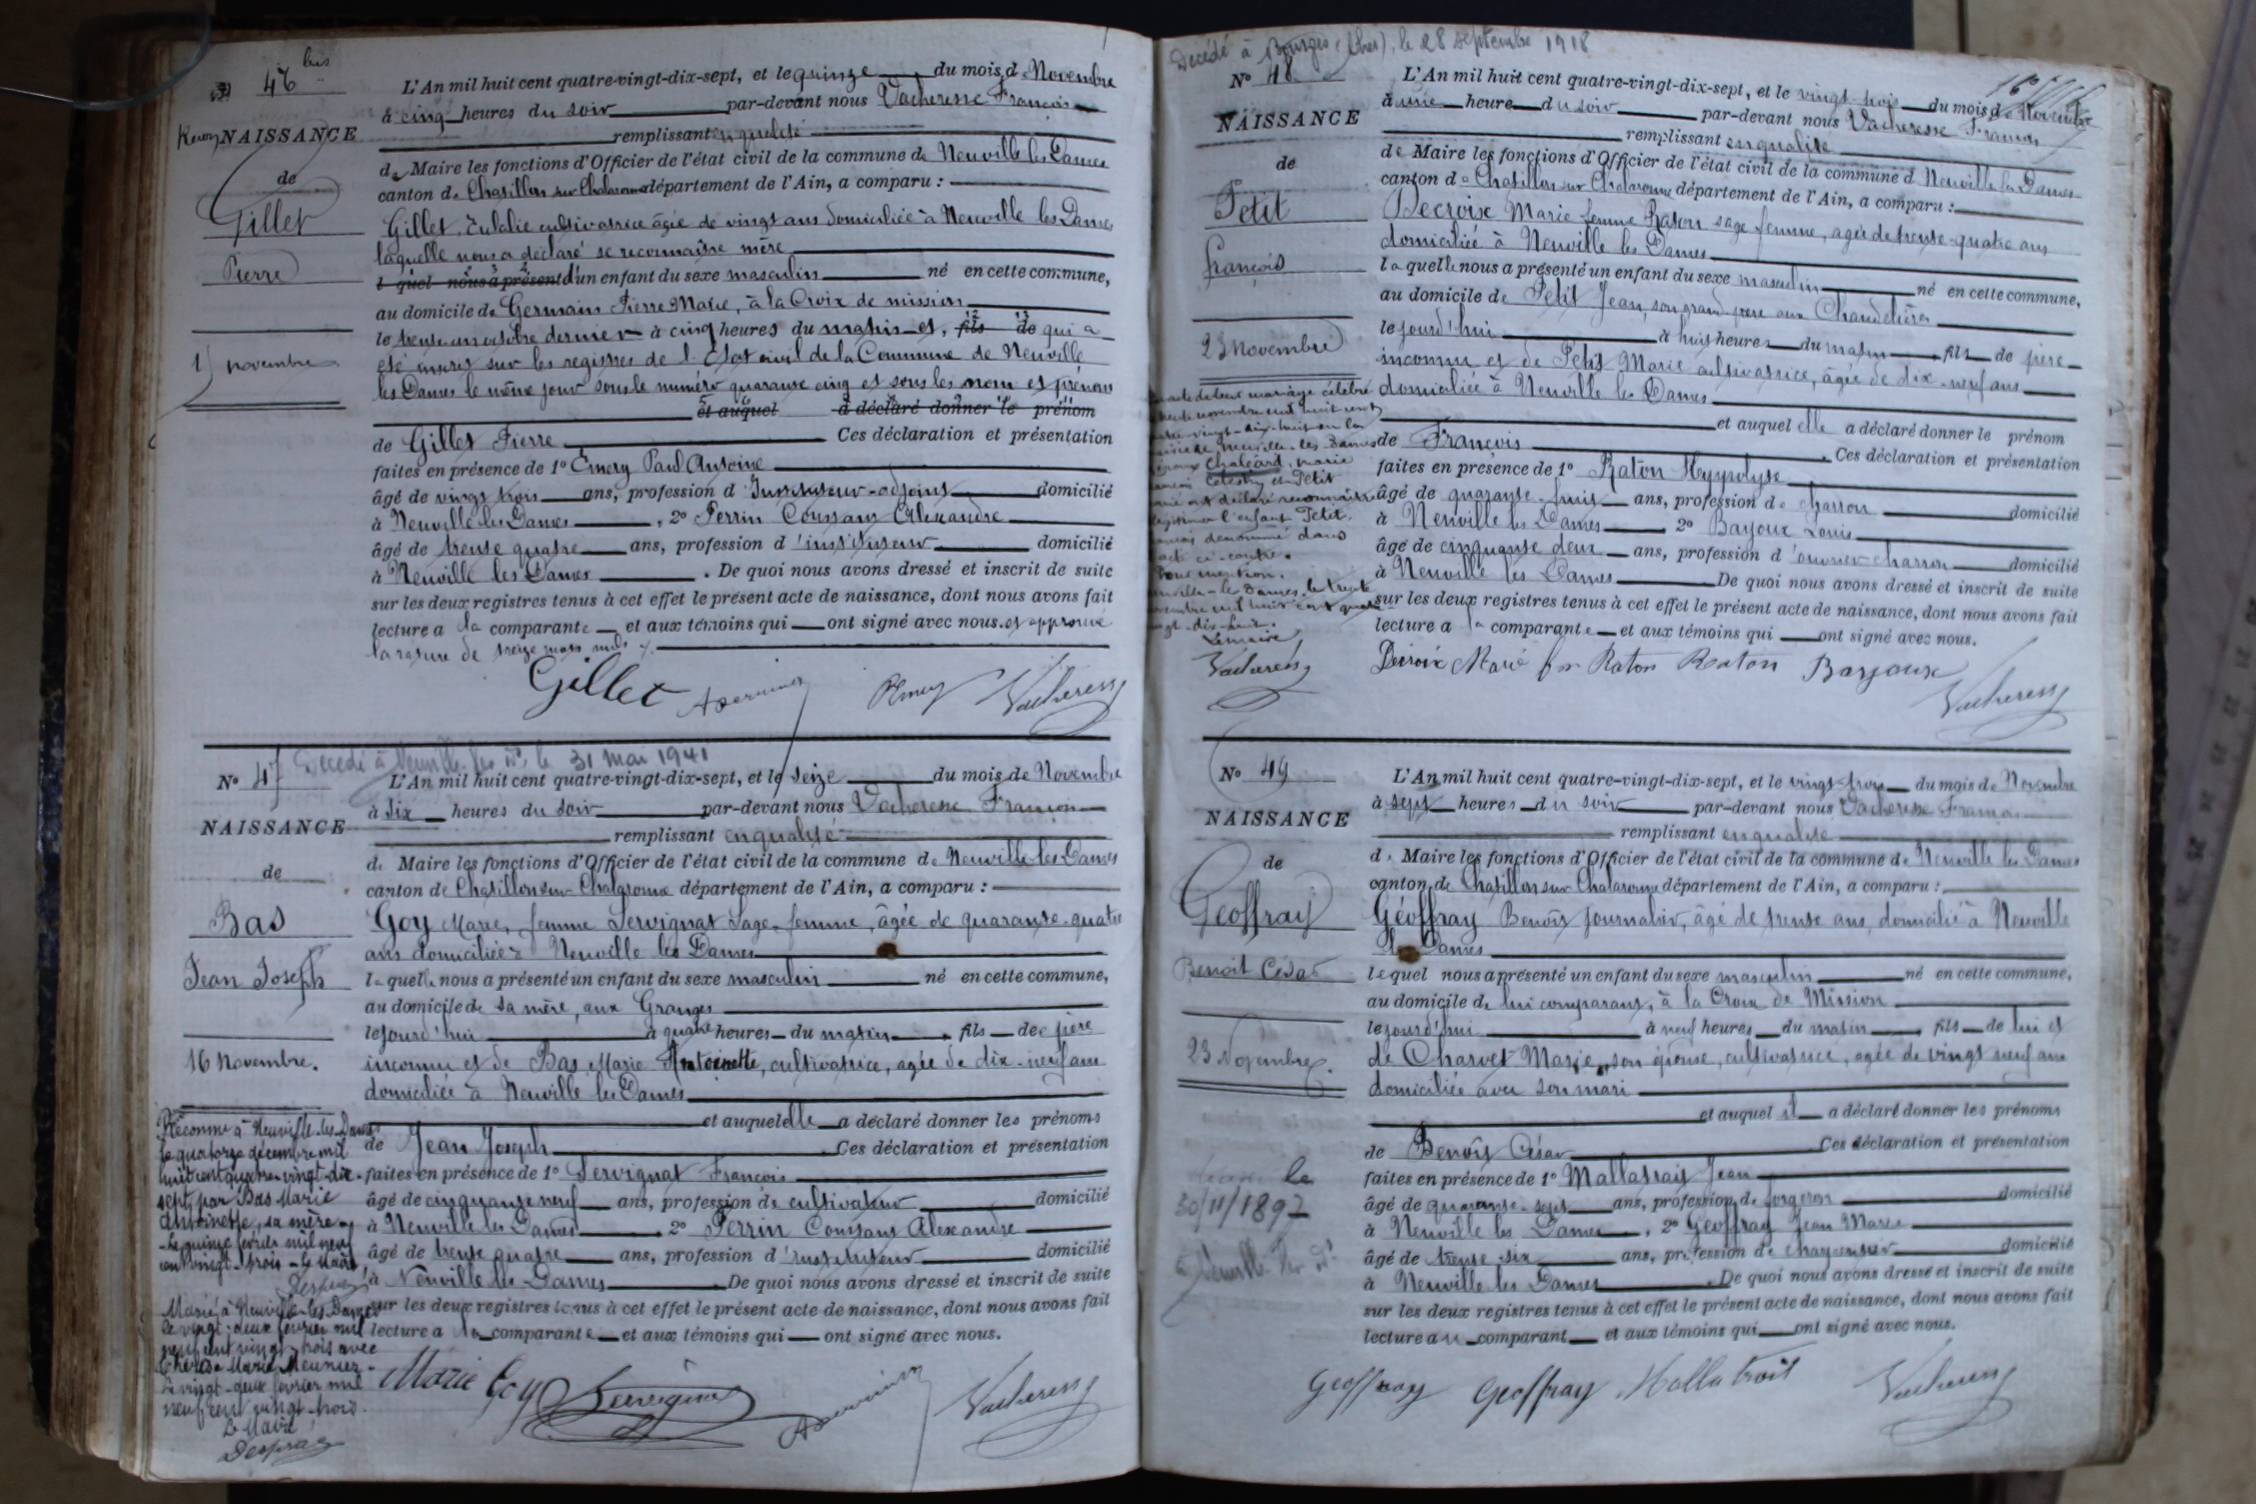 46 bis
NAISSANCE
de
Gillet
Pierre
15 novembre
L'An mil huit cent quatre-vingt-dix-sept, et le quinze du mois de Novembre
à cinq heures du soir par-devant nous Vacheresse François
remplissant en qualité
de Maire les fonctions d'Officier de l'état civil de la commune de Neuville les Dames
canton de Chatillon sur Chalaronne département de l'Ain, a comparu :
Gillet Eulalie cultivatrice âgée de vingt ans domiciliée à Neuville les Dames
laquelle nous a déclaré se reconnaître mère
l quel nous a présenté d'un enfant du sexe masculin né en cette commune,
au domicile de Germain Pierre Marie, à la Croix de mission
le trente un octobre dernier à cinq heures du matin et, fils de qui a
été inscrit sur les registres de l'Etat civil de la Commune de Neuville
les Dames le même jour sous le numéro quarante cinq et sous les nom et prénom
et auquel a déclaré donner le prénom
de Gillet Pierre Ces déclaration et présentation
faites en présence de 1º Emery Paul Antoine
âgé de vingt trois ans, profession d'Instituteur-adjoint domicilié
à Neuville les Dames, 2º Perrin Constant Alexandre
âgé de trente quatre ans, profession d'instituteur domicilié
à Neuville les Dames. De quoi nous avons dressé et inscrit de suite
sur les deux registres tenus à cet effet le présent acte de naissance, dont nous avons fait
lecture a la comparante et aux témoins qui ont signé avec nous. et approuvé
la rature de treize mots nuls
Gillet Emery Vacheresse
Décédé à Neuville les D. le 31 mai 1941
Nº 47
NAISSANCE
de
Bas
Jean Joseph
16 Novembre.
L'An mil huit cent quatre-vingt-dix-sept, et le seize du mois de Novembre
à six heures du soir par-devant nous Vacheresse François
remplissant en qualité
de Maire les fonctions d'Officier de l'état civil de la commune de Neuville les Dames
canton de Chatillon sur Chalaronne département de l'Ain, a comparu :
Goy Marie, femme Servignat Sage-femme, âgée de quarante-quatre
ans domiciliée à Neuville les Dames
laquelle nous a présenté un enfant du sexe masculin né en cette commune,
au domicile de sa mère, aux Granges
le jourd'hui à quatre heures du matin, fils de père
inconnu et de Bas Marie Antoinette, cultivatrice, agée de dix-neuf ans
domiciliée à Neuville les Dames
et auquel elle a déclaré donner les prénoms
de Jean Joseph Ces déclaration et présentation
faites en présence de 1º Servignat François
âgé de cinquante neuf ans, profession de cultivateur domicilié
à Neuville les Dames 2º Perrin Constant Alexandre
âgé de trente quatre ans, profession d'instituteur domicilié
à Neuville les Dames De quoi nous avons dressé et inscrit de suite
sur les deux registres tenus à cet effet le présent acte de naissance, dont nous avons fait
lecture a la comparante et aux témoins qui ont signé avec nous.
Marie Goy Servignat Vacheresse
Reconnu à Neuville-les-Dames
le quatorze décembre mil
huit cent quatre-vingt-dix-
sept, par Bas Marie
Antoinette, sa mère
Le quinze février mil neuf
cent vingt-trois - Le Maire
Marié à Neuville-les-Dames
le vingt-deux février mil
neuf cent vingt-trois avec
Marie Meunier.
Le vingt-deux février mil
neuf cent vingt-trois.
Le Maire
Décédé à Bourges (Cher), le 28 septembre 1918
Nº 48
NAISSANCE
de
Petit
François
23 Novembre
L'An mil huit cent quatre-vingt-dix-sept, et le vingt trois du mois de Novembre
à une heure du soir par-devant nous Vacheresse François
remplissant en qualité
de Maire les fonctions d'Officier de l'état civil de la commune d Neuville les Dames
canton de Chatillon sur Chalaronne département de l'Ain, a comparu :
Decroix Marie femme Raton sage femme, agée de trente-quatre ans
domiciliée à Neuville les Dames
laquelle nous a présenté un enfant du sexe masculin né en cette commune,
au domicile de Petit Jean, son grand père aux Chandelières
le jourd'hui à huit heures du matin, fils de père
inconnu et de Petit Marie cultivatrice, âgée de dix-neuf ans
domiciliée à Neuville les Dames
et auquel elle a déclaré donner le prénom
de François Ces déclaration et présentation
faites en présence de 1º Raton Hyppolyte
âgé de quarante huit ans, profession de charron domicilié
à Neuville les Dames 2º Barjoux Louis
âgé de cinquante deux ans, profession d'ouvrier charron domicilié
à Neuville les Dames De quoi nous avons dressé et inscrit de suite
sur les deux registres tenus à cet effet le présent acte de naissance, dont nous avons fait
lecture a la comparante et aux témoins qui ont signé avec nous.
Decroix Marie fm Raton Raton Barjoux
Vacheresse
acte de leur mariage célébré
trente novembre mil huit cent
vingt-dix-huit en la
mairie de Neuville-les-Dames
Chaléard, marie
et Petit
ont déclaré reconnaître
légitimer l'enfant Petit
dénommé dans
l'acte ci-contre.
Pour mention.
Neuville-les-Dames, le trente
novembre mil huit cent quatre
vingt-dix-huit.
Le maire
Vacheresse
Nº 49
NAISSANCE
de
Geoffray
Benoit César
23 Novembre.
L'An mil huit cent quatre-vingt-dix-sept, et le vingt-trois du mois de Novembre
à sept heures du soir par-devant nous Vacheresse François
remplissant en qualité
de Maire les fonctions d'Officier de l'état civil de la commune de Neuville les Dames
canton de Chatillon sur Chalaronne département de l'Ain, a comparu :
Géoffray Benoît journalier, âgé de trente ans, domicilié à Neuville
les Dames
lequel nous a présenté un enfant du sexe masculin né en cette commune,
au domicile de lui comparant, à la Croix de Mission
le jourd'hui à neuf heures du matin, fils de lui et
de Charvet Marie, son épouse, cultivatrice, agée de vingt neuf ans
domiciliée avec son mari
et auquel il a déclaré donner les prénoms
de Benoît César Ces déclaration et présentation
faites en présence de 1º Mallatrait Jean
âgé de quarante-sept ans, profession de forgeron domicilié
à Neuville les Dames, 2º Geoffray Jean Marie
âgé de trente-six ans, profession de charpentier domicilié
à Neuville les Dames. De quoi nous avons dressé et inscrit de suite
sur les deux registres tenus à cet effet le présent acte de naissance, dont nous avons fait
lecture au comparant et aux témoins qui ont signé avec nous.
Geoffray Geoffray Mallatrait Vacheresse
le
30/11/1897
à Neuville les Ds